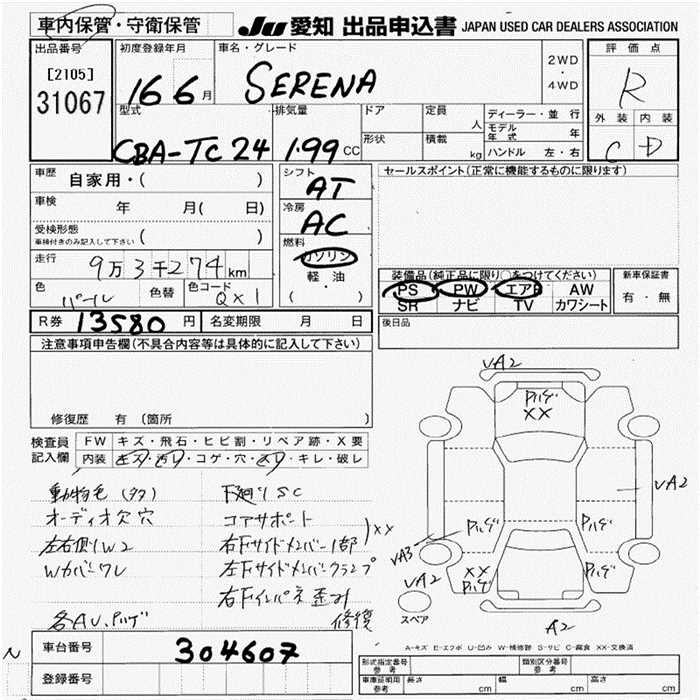 車内保管・守衛保管
JU 愛知 出品申込書 JAPAN USED CAR DEALERS ASSOCIATION
出品番号
[2105]
31067
初度登録年月
16 6月
車名・グレード
SERENA
2WD
・
4WD
評価点
R
外装 内装
C D
型式
CBA-TC24
排気量
1.99CC
ドア
形状
定員
人
積載
kg
ディーラー・並行
モデル年式 年
ハンドル 左・右
車歴
自家用・( )
車検 年 月( 日)
受検形態
車検付きのみ記入して下さい ( )
走行 9万3千274km
色 パール
色替
色コード
QX1
シフト
AT
冷房
AC
燃料
ガソリン
軽・油
( ・ )
セールスポイント(正常に機能するものに限ります)
装備品(純正品に限り○をつけてください)
PS PW エアB AW
SR ナビ TV カワシート
新車保証書
有・無
後日品
R券 13580円
名変期限 月 日
注意事項申告欄(不具合内容等は具体的に記入して下さい)
修復歴 有(箇所 )
検査員
記入欄
FW キズ・飛石・ヒビ割・リペア跡・X要
内装 キズ・汚レ・コゲ・穴・スレ・キレ・破レ
動物色(タタ)
オーディオ欠穴
左右側W2
Wカバーワレ
各AU、アルゲ
下廻りSC
コアサポート
右下サイドメンバー1部
XX
左下サイドメンバークランプ
右下インパネ歪み
修復
VA2
XX
VA2
VA3
VA2
XX
スペア
A2
A-キズ E-エクボ U-凹み W-補修跡 S-サビ C-腐食 XX-交換済
N
車台番号
304607
登録番号
形式指定番号
参考
類別区分番号
参考
車庫証明用
参考
長さ cm
幅 cm
高さ cm